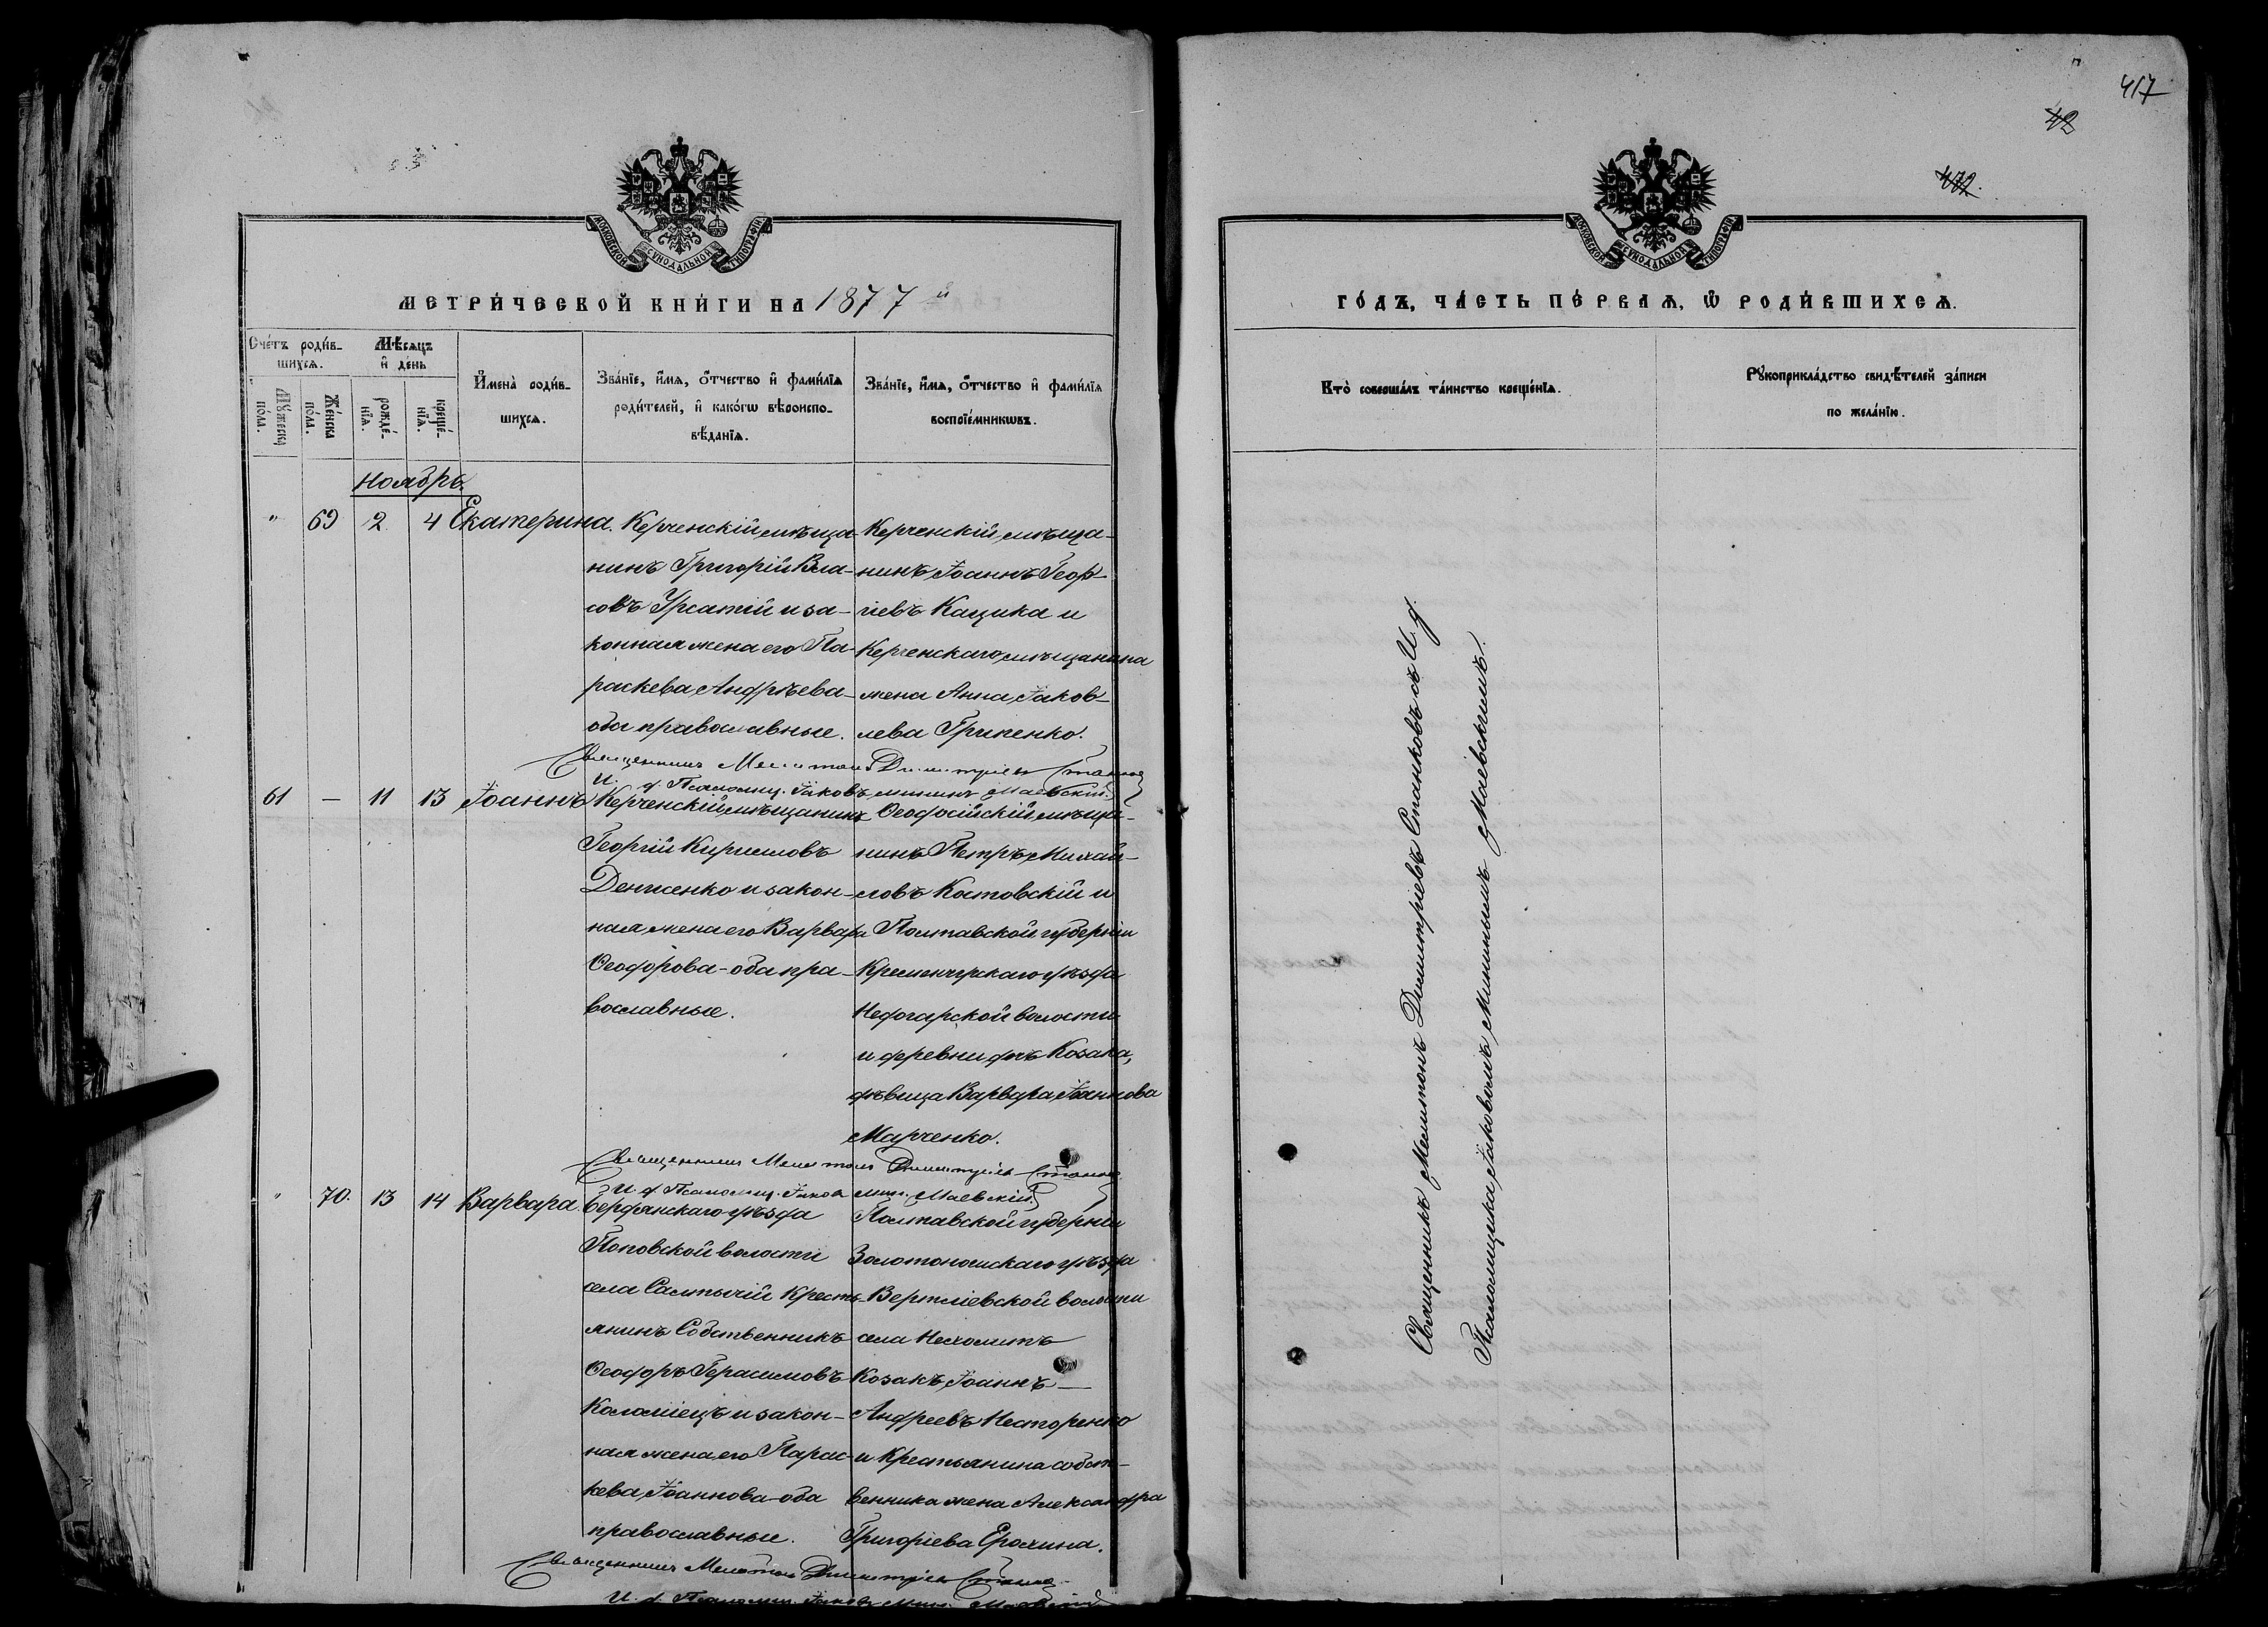 417
42
472.
МОСКОВСКОЙ СУНОДАЛЬНОЙ ТИПОГРАФІИ
МЕТРИ́ЧЕСКОЙ КНИ́ГИ НА 1877 й
Сче́тъ роди́в-
шихсѧ.
Мѣ́сѧцъ
и҆ де́нь
Мꙋ́жеска
по́ла.
Же́нска
по́ла.
рожде́-
нїѧ.
креще́-
нїѧ.
И҆мена̀ роди́в-
шихсѧ.
Зва́нїе, и҆́мѧ, ѻ҆́тчество и҆ фами́лїѧ
роди́телей, и҆ како́гѡ вѣроиспо-
вѣ́данїѧ.
Зва́нїе, и҆́мѧ, ѻ҆́тчество и҆ фами́лїѧ
воспрїе́мникѡвъ.
Ноябрь.
" 69 2 4 Екатерина.
Керченскій мѣща-
нинъ Григорій Вла-
совъ Усатій и за-
конная жена его Па-
раскева Андрѣева
оба православные.
Керченскій мѣща-
нинъ Іоаннъ Геор-
гіевъ Кацика и
Керченскаго мѣщанина
жена Анна Іаков-
лева Грипенко.
Священникъ Мелитонъ Димитріевъ Станковъ
И. д. Псаломщ. Іаковъ Мининъ Маевскій.
61 — 11 13 Іоаннъ
Керченскій мѣщанинъ
Георгій Кирилловъ
Денисенко и закон-
ная жена его Варвара
Ѳеодорова - оба пра-
вославные.
Ѳеодосійскій мѣща-
нинъ Петръ Михай-
ловъ Костовскій и
Полтавской губерніи
Кременчугскаго уѣзда
волости
и деревни дочь Козака,
дѣвица Варвара Іоаннова
Марченко.
Священникъ Мелитонъ Димитріевъ Станковъ
И. д. Псаломщ. Іаковъ Мин. Маевскій.
" 70. 13 14 Варвара.
Бердянскаго уѣзда
Поповской волости
села Салтычій Кресть-
янинъ Собственникъ
Ѳеодоръ Герасимовъ
Коломіецъ и закон-
ная жена его Парас-
кева Іоаннова - оба
православные.
Полтавской губерніи
Золотоношскаго уѣзда
волости
села
Козакъ Іоаннъ —
Андреевъ Несторенко
и Крестьянина собст-
венника жена Александра
Григоріева Ерохина.
Священникъ Мелитонъ Димитріевъ Станковъ
И. д. Псаломщ. Іаковъ Мин. Маевскій
МОСКОВСКОЙ СУНОДАЛЬНОЙ ТИПОГРАФІИ
ГО́ДЪ, ЧА́СТЬ ПЕ́РВАѦ, Ѡ҆ РОДИ́ВШИХСѦ.
Кто̀ соверша́лъ та́инство креще́нїѧ.
Рꙋкоприкла́дство свидѣ́телей за́писи
по жела́нїю.
Священникъ Мелитонъ Димитріевъ Станковъ съ И. д.
Псаломщика Іаковомъ Мининымъ Маевскимъ.